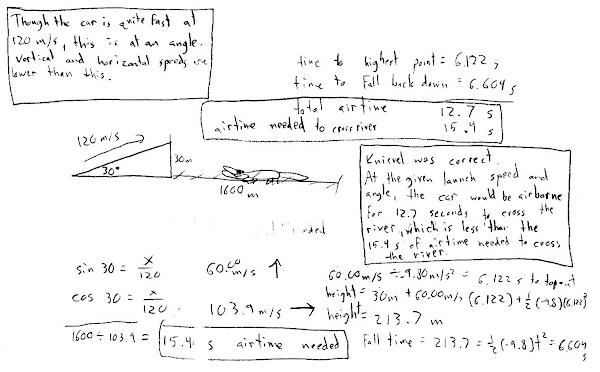 Though the car is quite fast at
120 m/s, this is at an angle.
Vertical and horizontal speeds are
lower than this.
time to highest point = 6.122 s
time to fall back down = 6.604 s
total airtime 12.7 s
airtime needed to cross river 15.4 s
120 m/s
30°
30m
1600 m
Knievel was correct.
At the given launch speed and
angle, the car would be airborne
for 12.7 seconds to cross the
river, which is less than the
15.4 s of airtime needed to cross
the river.
sin 30 = x/120 60.00 m/s ↑
cos 30 = x/120 103.9 m/s →
1600 ÷ 103.9 = 15.4 s airtime needed
60.00 m/s ÷ -9.80 m/s² = 6.122 s to top out
height = 30m + 60.00 m/s (6.122) + ½ (-9.8)(6.122)²
height = 213.7 m
Fall time = 213.7 = ½ (-9.8) t² = 6.604 s